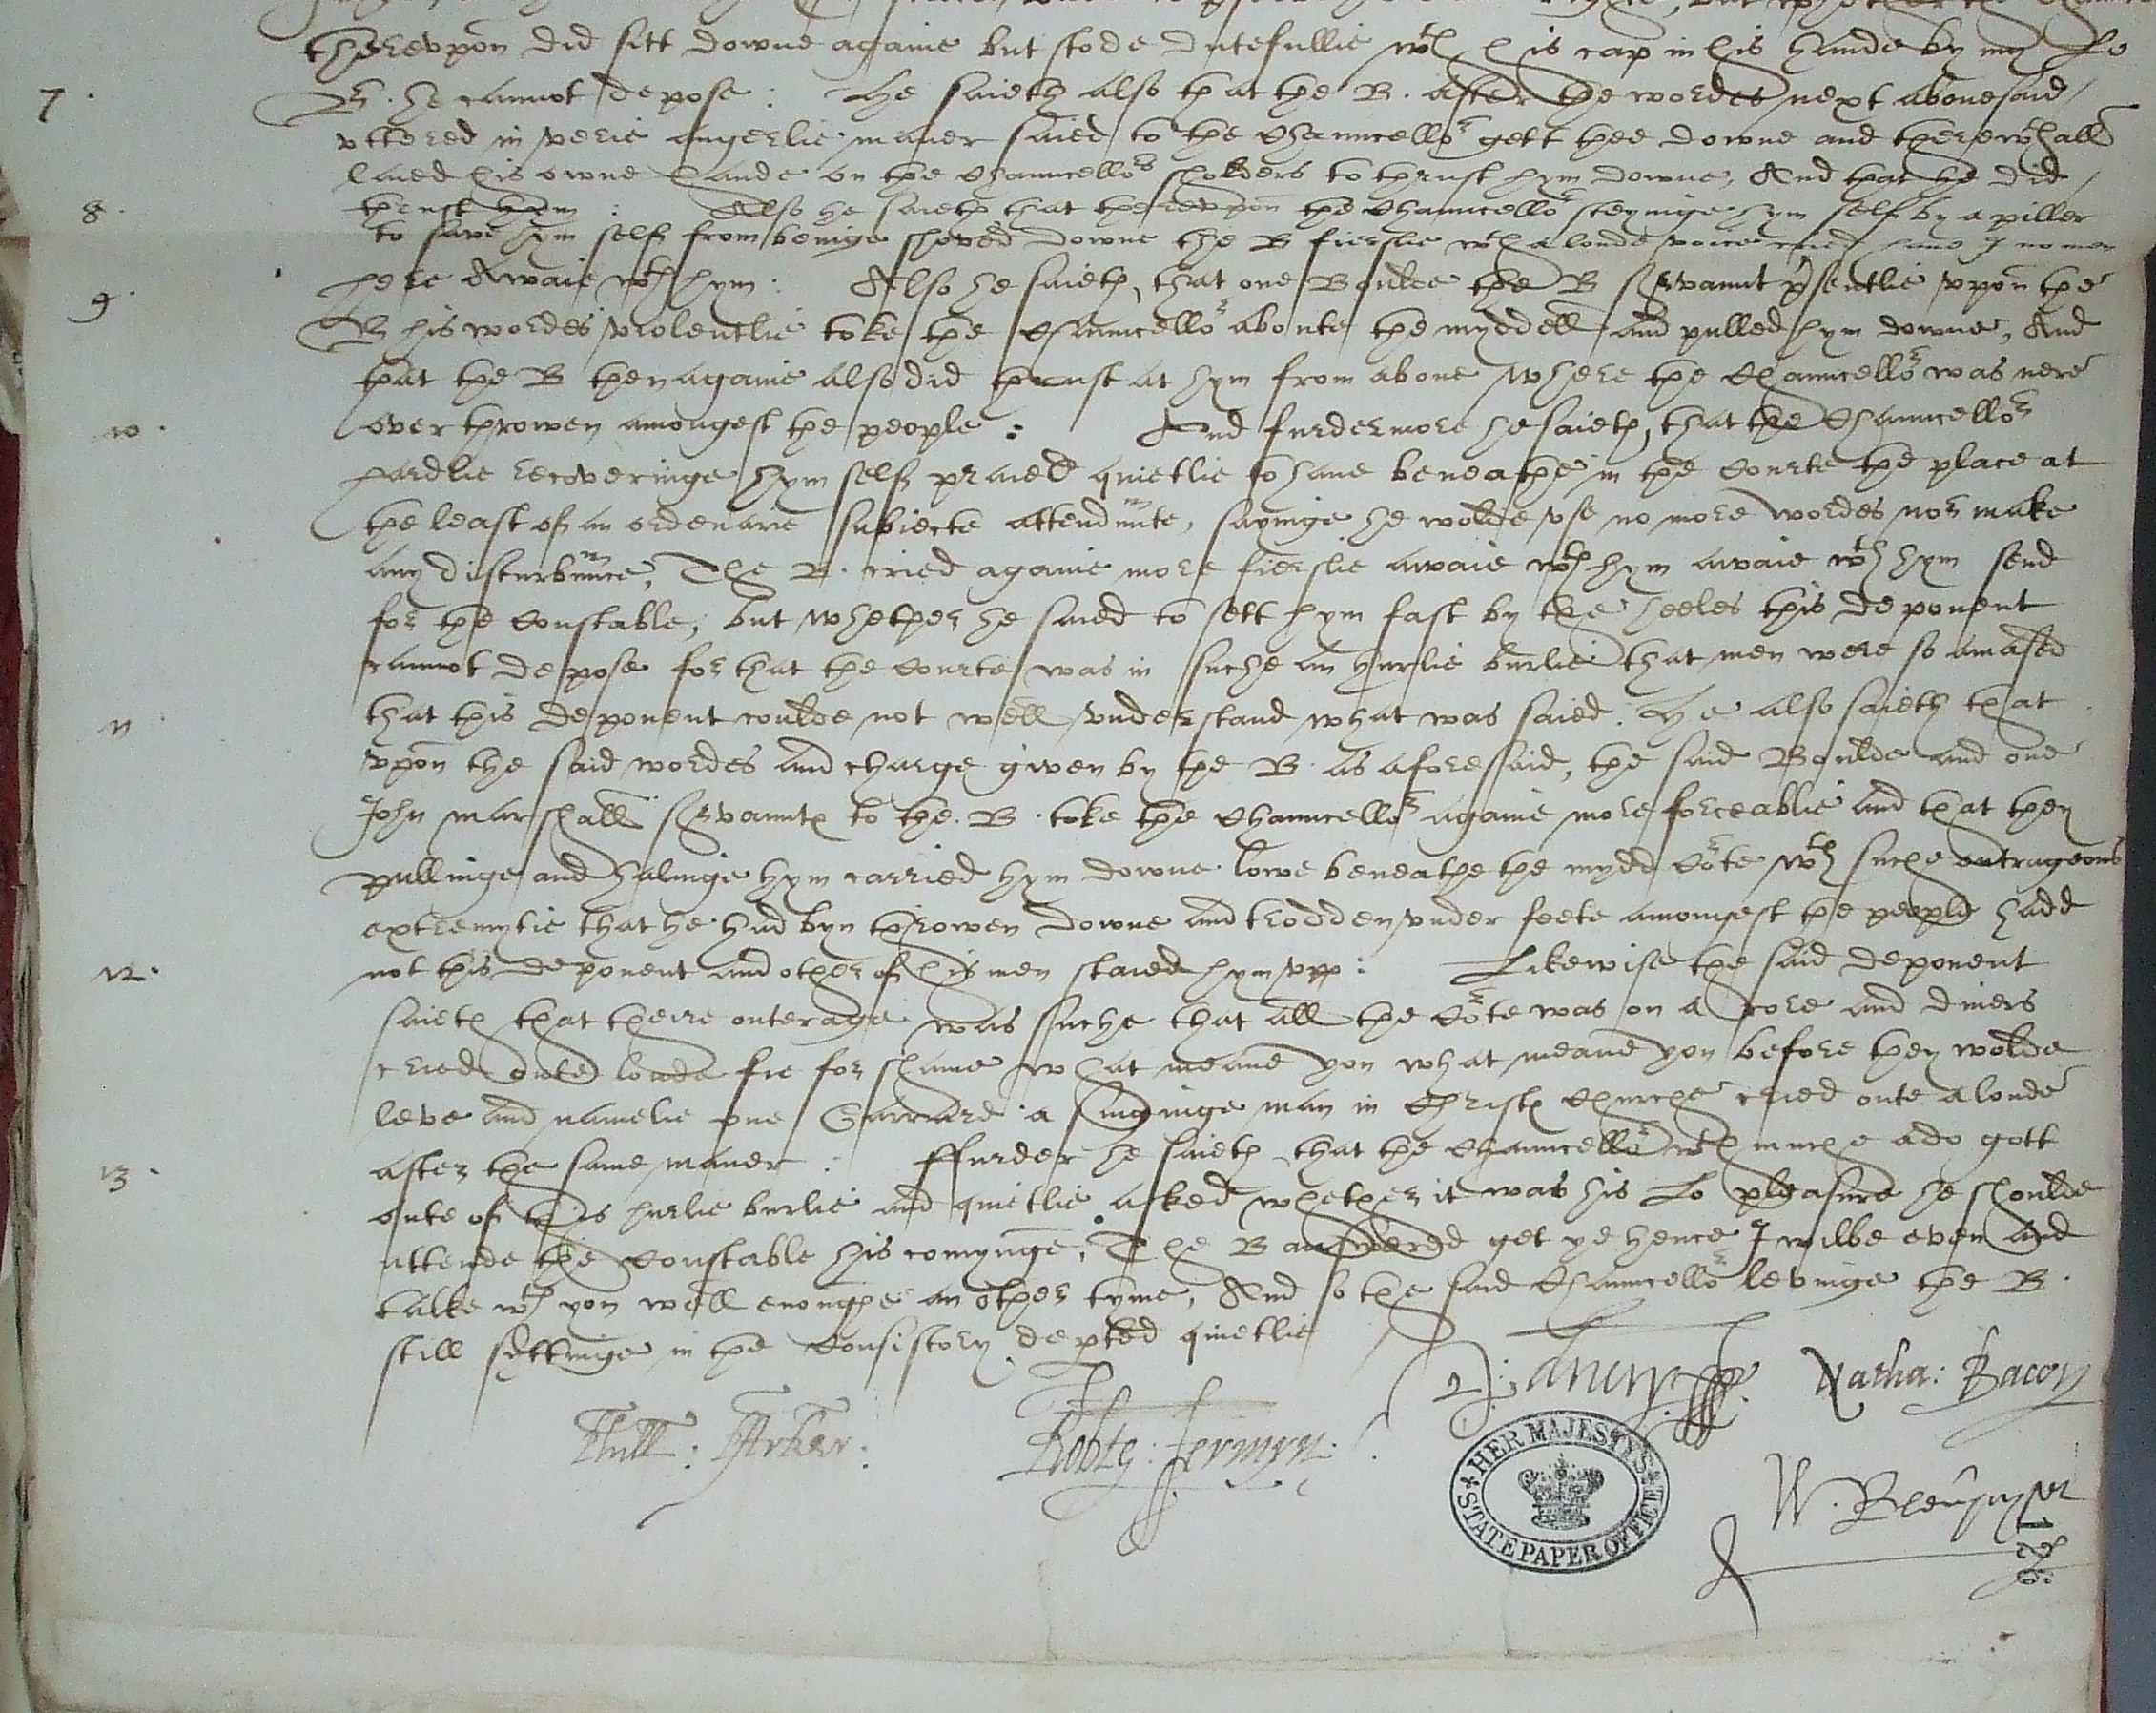 therevpon did sitt downe againe but stode dutefullie wth his cap in his hande by my Lo
7. B. he cannot depose : He saieth also that the B. after the wordes next abovesaid
vttered in verie angerlie maner saied to the Chauncellor gett thee downe and therewthall
laied his owne hande on the Chauncellors sholders to thrust hym downe, And that he did
8. thrust hym : Also he saieth that therevpon the Chauncellor steyinge hym self by a piller
to save hym self from beinge shoved downe the B fierslie wth a loude voice cried have I no men
here Awaie wth hym :
9. Also he saieth, that one Boulde the B servaunt presentlie vpon the
B his wordes violentlie toke the Chauncellor aboute the myddell and pulled hym downe, And
that the B then againe also did thrust at hym from above where the Chauncellor was nere
10. over throwen amongest the people : And furdermore he saieth, that the Chauncellor
hardlie recoveringe hym self praied quietlie to have beneathe in the Courte the place at
the least of an ordenarie subiecte attendunte, sayinge he wolde vse no more wordes nor make
any disturbunce, The B. cried againe more fierslie awaie wth hym awaie wth hym send
for the Constable, but whether he saied to sett hym fast by the heeles this deponent
cannot depose for that the Courte was in suche an hurlie burlie that men were so amased
11 that this deponent coulde not well vnderstand what was saied. He also saieth that
vpon the said wordes and charge given by the B. as aforesaid, the said Boulde and one
John Marshall servaunte to the B. toke the Chauncellor againe more forceablie and that they
pullinge and halinge hym carried hym downe lowe beneathe the mydd Corte wth suche outragious
extremytie that he had byn throwen downe and trodden vnder feete amongest the people hadd
12. not this deponent and other of his men staied hym vpp : Likewise the said deponent
saieth that theire outerage was suche that all the Corte was on a rore and divers
cried oute loude fie for shame what meane you what meane you before they wolde
leve and namelie one Garrard a singinge man in Christe Churche cried oute aloude
13. after the same maner : Ffurder he saieth that the Chauncellor wth muche ado gott
oute of this hurlie burlie and quietlie asked whether it was his Lo pleasure he shoulde
attende the Constable his comynge, The B answered get ye hence I wilbe even and
talke wth you well enoughe an other tyme, And so the said Chauncellor levinge the B.
still syttinge in the Consistory depted quietlie
Natha: Bacon
Robte: Jermyn.
HER MAJESTY'S STATE PAPER OFFICE
128